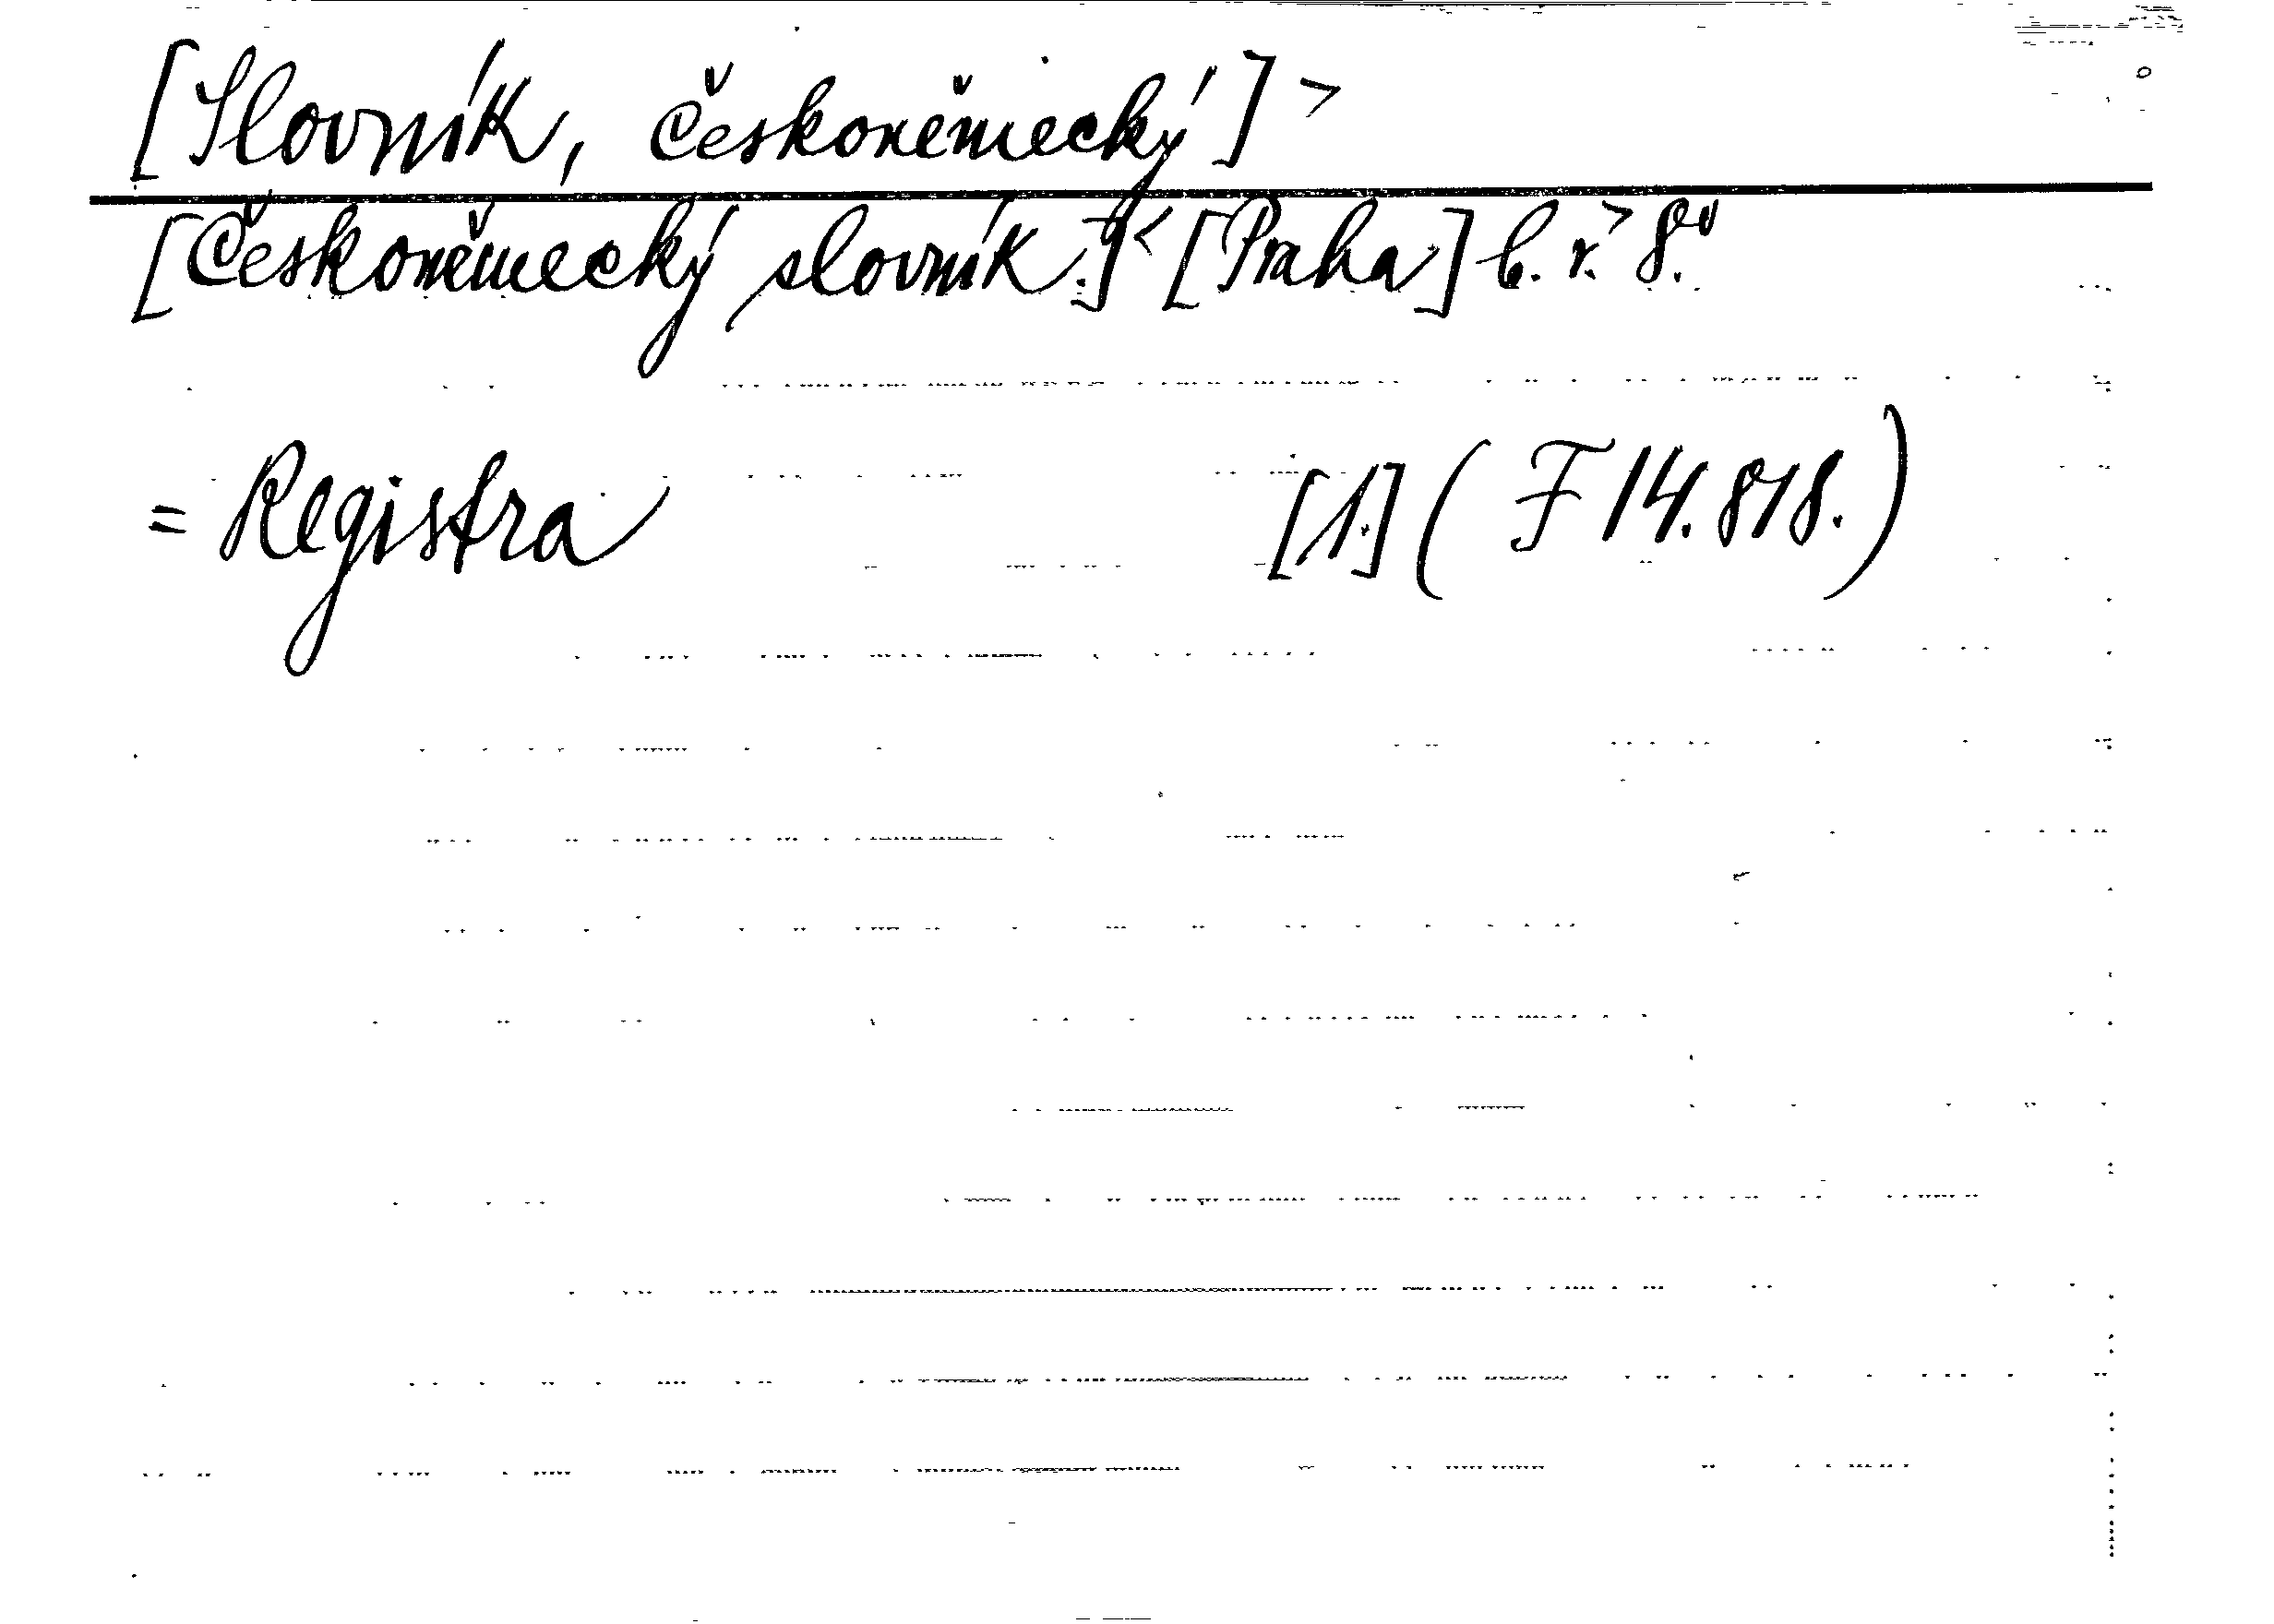 [Slovník, českoněmecký] >
[Českoněmecký slovník.] < [Praha] b. r. > 8.°
= Registra [1.] ( F 14.818. )